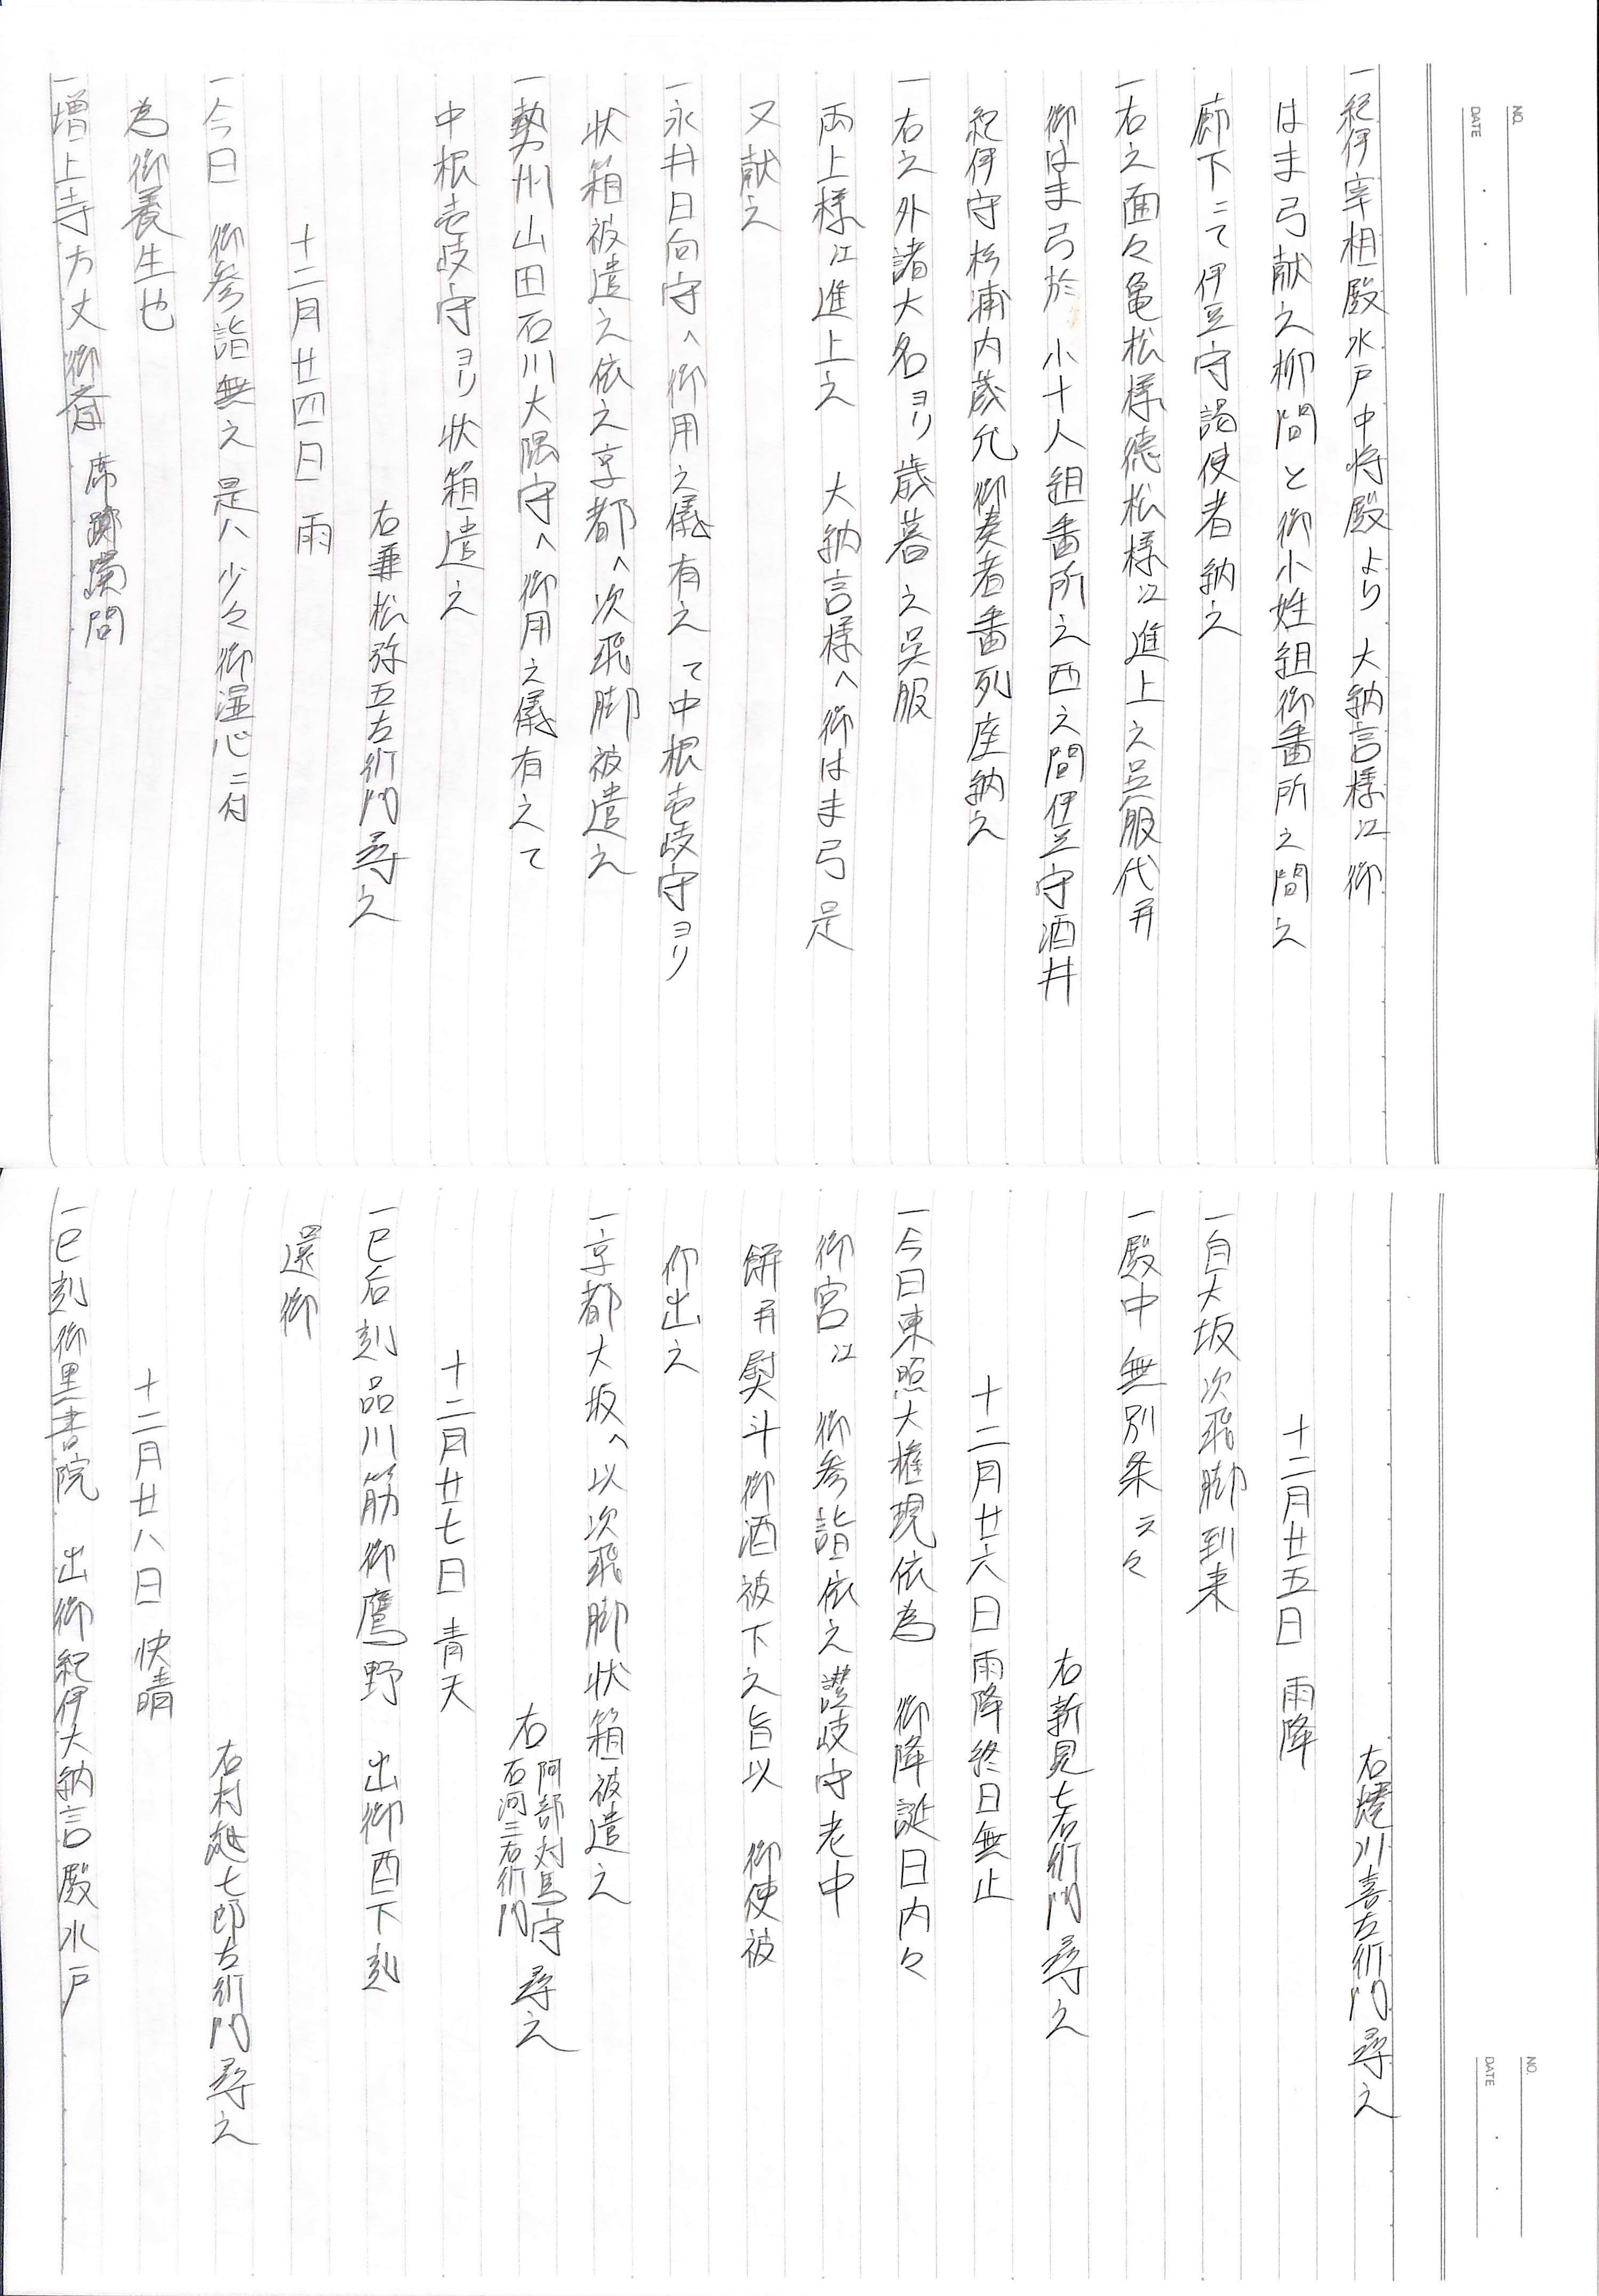 NO.
DATE
一紀伊宰相殿水戸中将殿より 大納言様江御
はま弓献之柳間と御小姓組御番所之間之
廊下ニて伊豆守謁使者納之
一右之面々亀松様徳松様江進上之呉服代并
御はま弓於 小十人組番所之西之間伊豆守酒井
紀伊守杉浦内蔵允御奏者番列座納之
一右之外諸大名ヨリ歳暮之呉服
両上様江進上之 大納言様へ御はま弓是
又献之
一永井日向守へ御用之儀有之て中根壱岐守ヨリ
状箱被遣之依之京都へ次飛脚被遣之
一勢州山田石川大隅守へ御用之儀有之て
中根壱岐守ヨリ状箱遣之
右兼松弥五左衛門尋之
十二月廿四日 雨
一今日 御参詣無之是ハ少々御湿心ニ付
為御養生也
一増上寺方丈御斎 席躑躅間
NO.
DATE
右蜷川喜左衛門尋之
十二月廿五日 雨降
一自大坂次飛脚到来
一殿中無別条云々
右新見七右衛門尋之
十二月廿六日 雨降終日無止
一今日東照大権現依為 御降誕日内々
御宮江 御参詣依之讃岐守老中
餅并熨斗御酒被下之旨以 御使被
仰出之
一京都大坂へ以次飛脚状箱被遣之
右 阿部対馬守 石河三右衛門 尋之
十二月廿七日 青天
一巳后刻品川筋御鷹野 出御酉下刻
還御
右村越七郎左衛門尋之
十二月廿八日 快晴
一巳刻御黒書院 出御紀伊大納言殿水戸